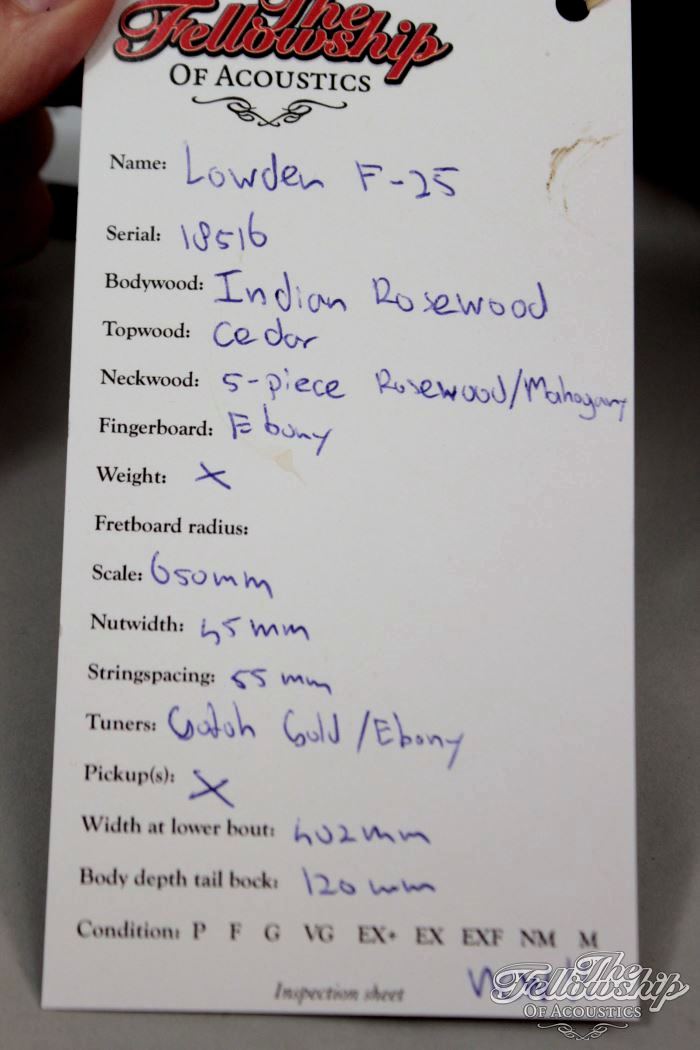 The
Fellowship
OF ACOUSTICS
Name: Lowden F-25
Serial: 18516
Bodywood: Indian Rosewood
Topwood: Cedar
Neckwood: 5-piece Rosewood/Mahogany
Fingerboard: Ebony
Weight: X
Fretboard radius:
Scale: 650mm
Nutwidth: 45 mm
Stringspacing: 55 mm
Tuners: Gotoh Gold/Ebony
Pickup(s): X
Width at lower bout: 402mm
Body depth tail bock: 120 mm
Condition: P F G VG EX+ EX EXF NM M
Inspection sheet
The
Fellowship
OF ACOUSTICS